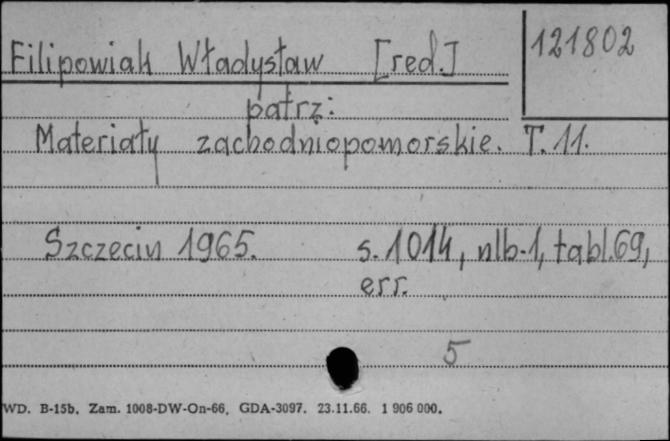 Filipowiak Władysław [red.]
121802
patrz:
Materiały zachodniopomorskie. T. 11.
Szczecin 1965. s. 1014, nlb. 1, tabl. 69,
err.
5
WD. B-15b. Zam. 1008-DW-On-66. GDA-3097. 23.11.66. 1 906 000.